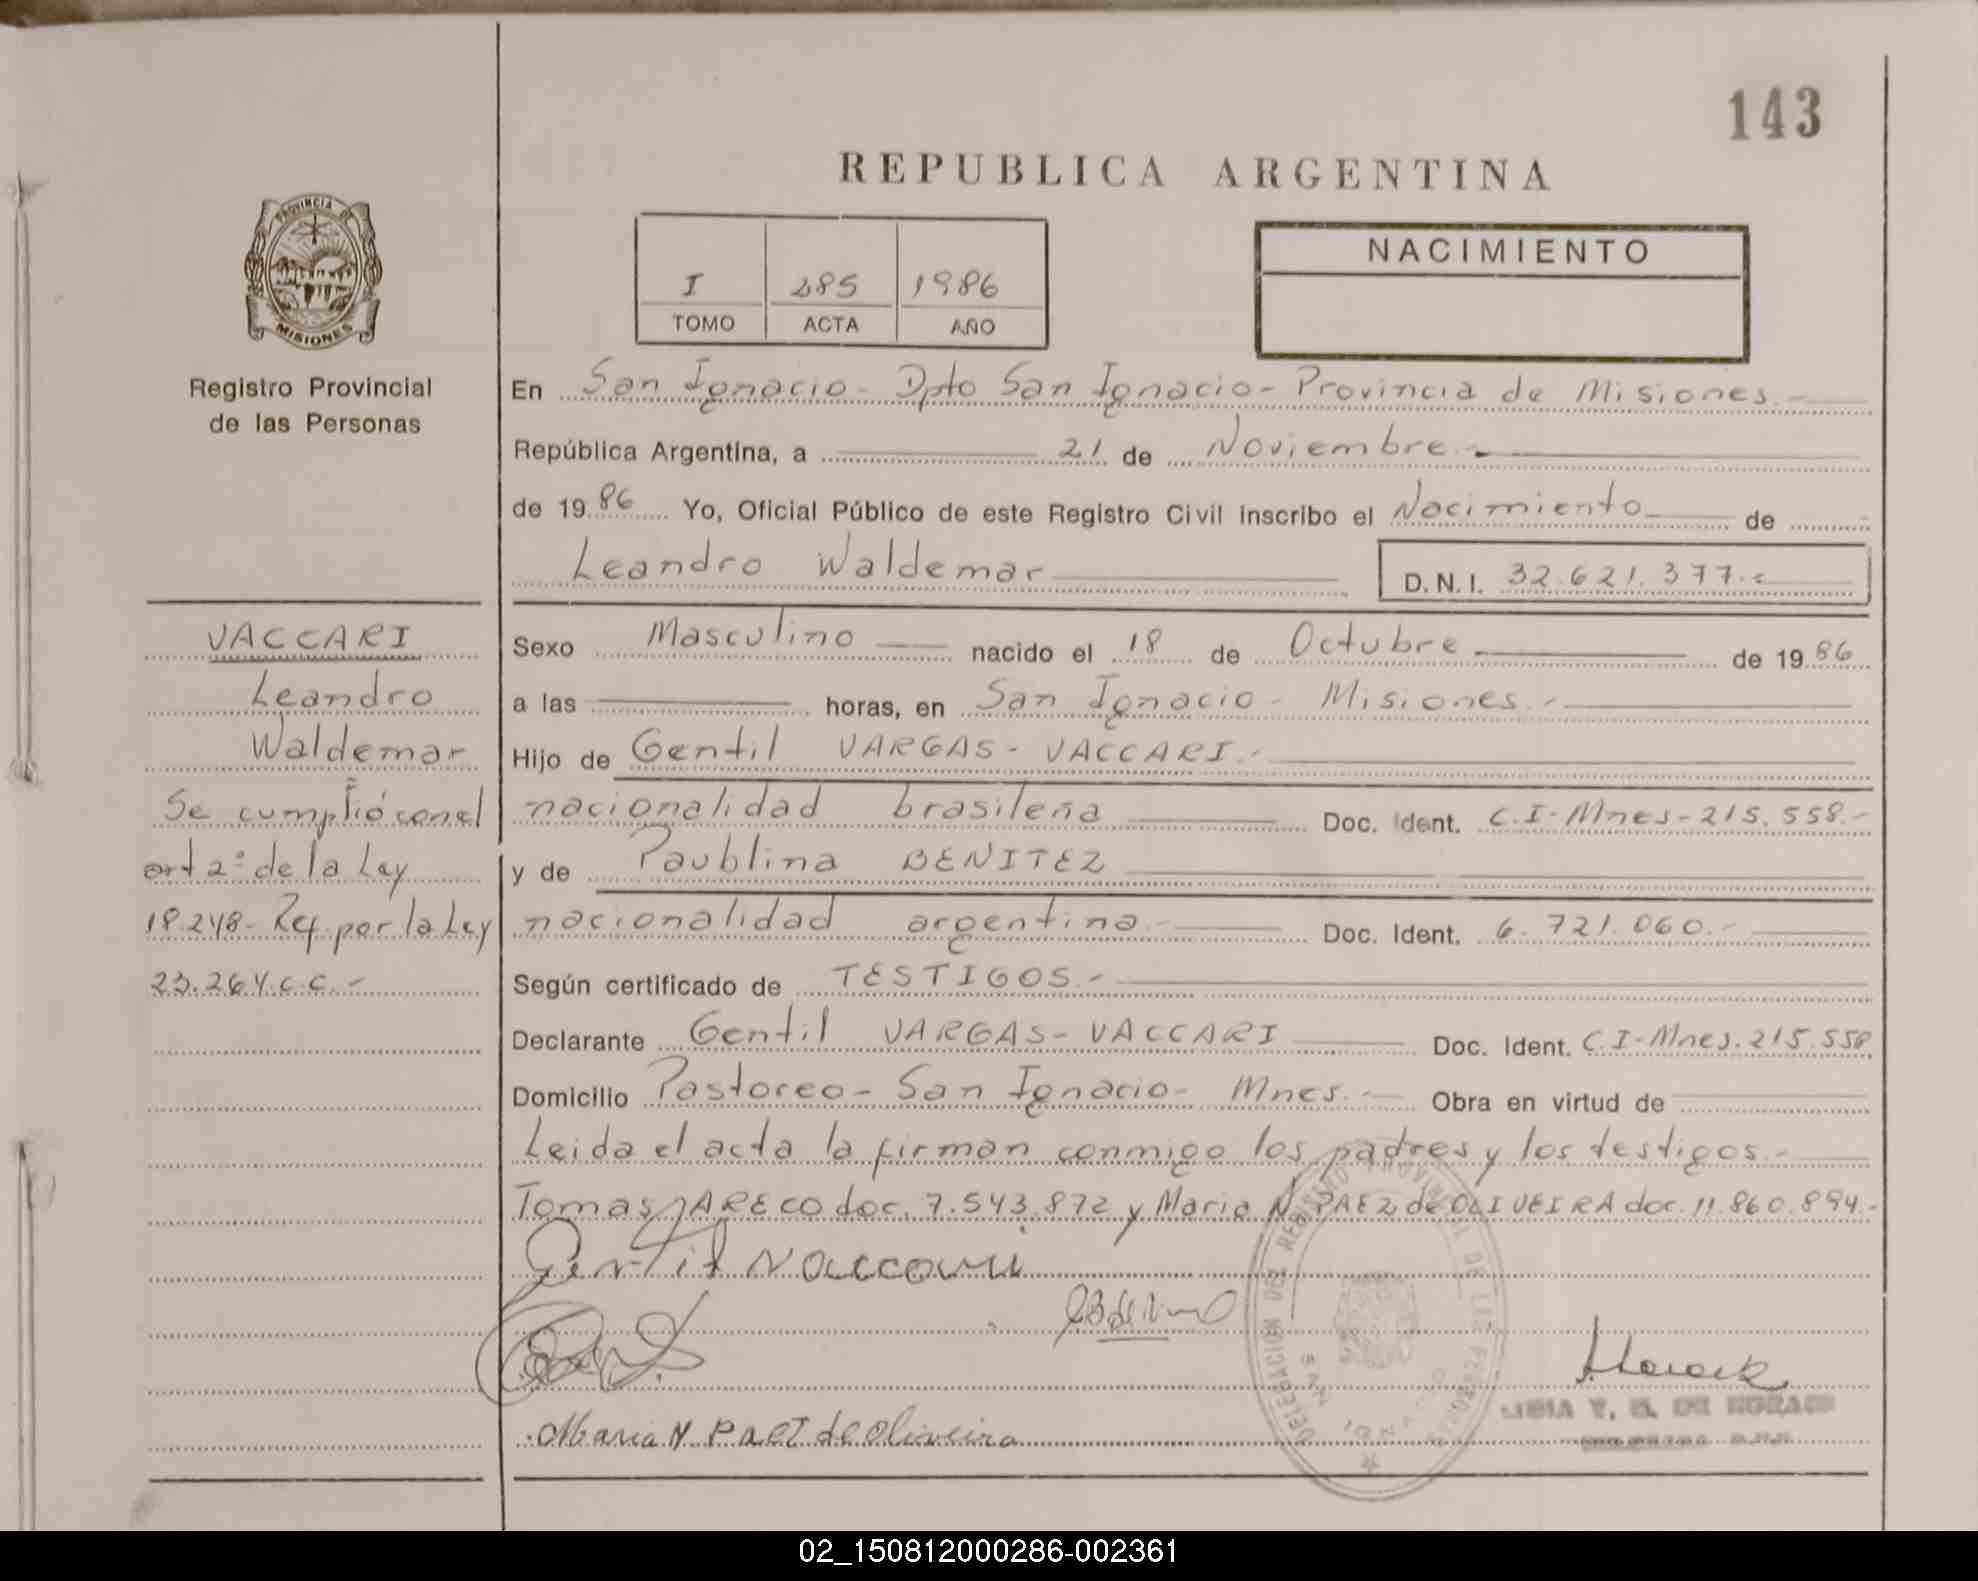 143
REPUBLICA ARGENTINA
PROVINCIA DE
MISIONES
Registro Provincial
de las Personas
I 285 1986
TOMO ACTA AÑO
NACIMIENTO
En San Ignacio - Dpto San Ignacio - Provincia de Misiones.-
República Argentina, a 21 de Noviembre.-
de 1986 Yo, Oficial Público de este Registro Civil inscribo el Nacimiento de
Leandro Waldemar D.N.I. 32.621.377.-
VACCARI
Leandro
Waldemar
Se cumplió con el
art 2º de la Ley
18.248 - Ref. por la Ley
23.264.C.C.-
Sexo Masculino nacido el 18 de Octubre de 1986
a las horas, en San Ignacio - Misiones.-
Hijo de Gentil VARGAS - VACCARI.-
nacionalidad brasileña Doc. Ident. C.I-Mnes-215.558.-
y de Paublina BENITEZ
nacionalidad argentina.- Doc. Ident. 6.721.060.-
Según certificado de TESTIGOS.-
Declarante Gentil VARGAS-VACCARI Doc. Ident. C.I-Mnes.215.558
Domicilio Pastoreo - San Ignacio - Mnes.- Obra en virtud de
Leida el acta la firman conmigo los padres y los testigos.-
Tomas ARECO doc. 7.543.872 y Maria N. PAEZ de OLIVEIRA doc. 11.860.894.-
Gentil Vaccari
Maria N PAEZ de Oliveira
DELEGACION DEL REGISTRO PROVINCIAL DE LAS PERSONAS
SAN IGNACIO
02_150812000286-002361